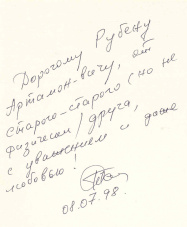 Дорогому Рубену
Артамон-вичу, от
старого-старого (но не
физически) друга,
с уважением и даже
любовью!
08.07.98.